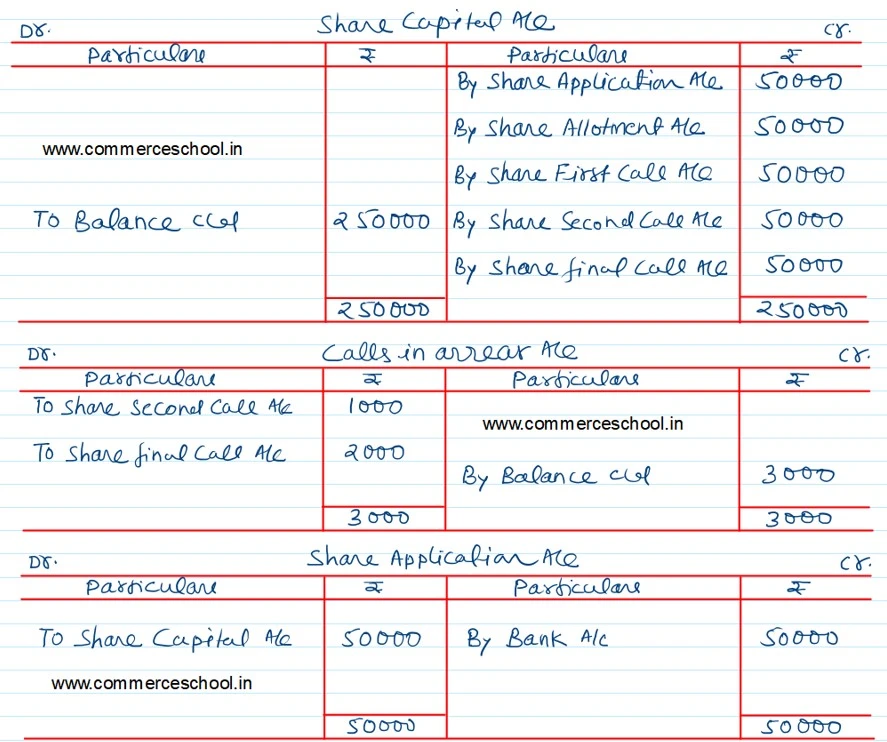 Share Capital A/c
Dr. Cr.
Particulars ₹ Particulars ₹
By Share Application A/c 50000
By Share Allotment A/c 50000
www.commerceschool.in
By Share First Call A/c 50000
To Balance c/d 250000 By Share Second Call A/c 50000
By Share final Call A/c 50000
250000 250000
Dr. Calls in arrear A/c Cr.
Particulars ₹ Particulars ₹
To Share Second Call A/c 1000
www.commerceschool.in
To Share final Call A/c 2000
By Balance c/d 3000
3000 3000
Dr. Share Application A/c Cr.
Particulars ₹ Particulars ₹
To Share Capital A/c 50000 By Bank A/c 50000
www.commerceschool.in
50000 50000